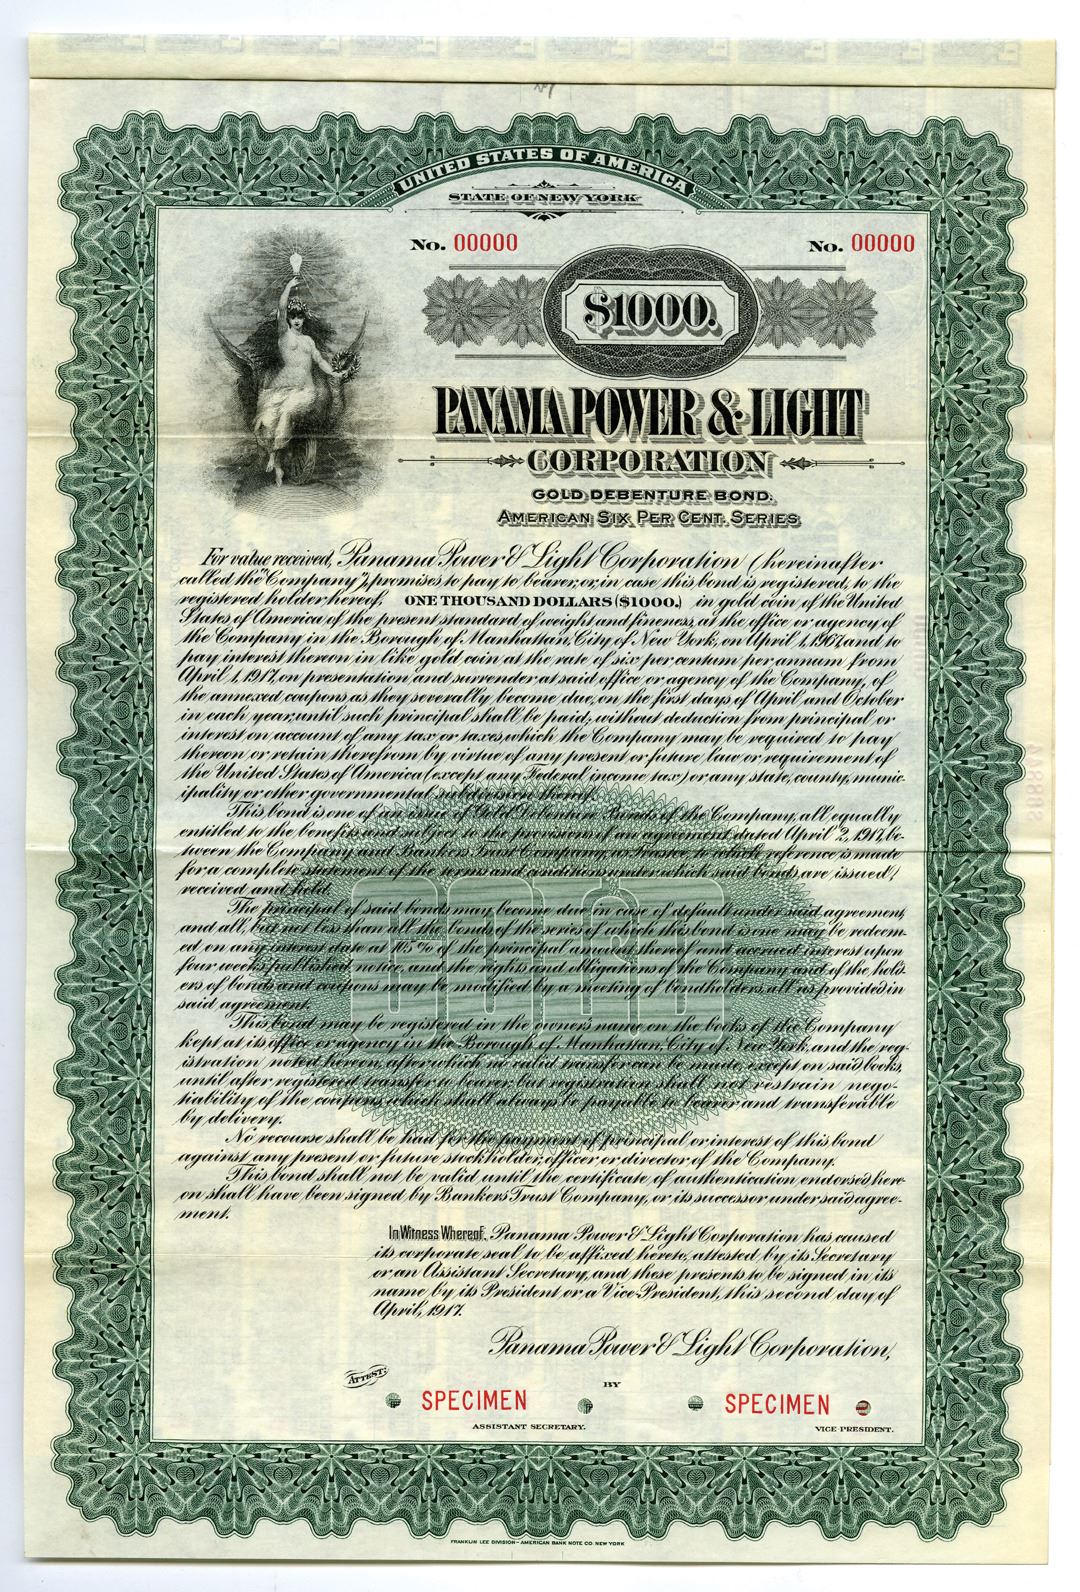 UNITED STATES OF AMERICA
STATE OF NEW YORK
No. 00000 No. 00000
$1000.
PANAMA POWER & LIGHT
CORPORATION
GOLD DEBENTURE BOND.
AMERICAN SIX PER CENT. SERIES
For value received, Panama Power & Light Corporation (hereinafter
called the "Company"), promises to pay to bearer, or, in case this bond is registered, to the
registered holder hereof, ONE THOUSAND DOLLARS ($1000.) in gold coin of the United
States of America of the present standard of weight and fineness, at the office or agency of
the Company in the Borough of Manhattan, City of New York, on April 1, 1967, and to
pay interest thereon in like gold coin at the rate of six per centum per annum from
April 1, 1917, on presentation and surrender at said office or agency of the Company, of
the annexed coupons as they severally become due, on the first days of April and October
in each year, until such principal shall be paid, without deduction from principal or
interest on account of any tax or taxes, which the Company may be required to pay
thereon or retain therefrom by virtue of any present or future law or requirement of
the United States of America (except any Federal income tax) or any state, county, munic-
ipality or other governmental subdivision thereof.
This bond is one of an issue of Gold Debenture Bonds of the Company, all equally
entitled to the benefits and subject to the provisions of an agreement dated April 2, 1917, be-
tween the Company and Bankers Trust Company, as trustee, to which reference is made
for a complete statement of the terms and conditions under which said bonds, are issued,
received and held.
The principal of said bonds may become due in case of default under said agreement,
and all, but not less than all the bonds of the series of which this bond is one may be redeem-
ed on any interest date at 105% of the principal amount thereof and accrued interest upon
four weeks published notice, and the rights and obligations of the Company and of the hold-
ers of bonds and coupons may be modified by a meeting of bondholders, all as provided in
said agreement.
This bond may be registered in the owner's name on the books of the Company
kept at its office or agency in the Borough of Manhattan, City of New York, and the reg-
istration noted hereon, after which no valid transfer can be made, except on said books,
until after registered transfer to bearer; but registration shall not restrain nego-
tiability of the coupons, which shall always be payable to bearer and transferable
by delivery.
No recourse shall be had for the payment of principal or interest of this bond
against any present or future stockholder, officer or director of the Company.
This bond shall not be valid until the certificate of authentication endorsed here-
on shall have been signed by Bankers Trust Company, or its successor under said agree-
ment.
In Witness Whereof, Panama Power & Light Corporation has caused
its corporate seal to be affixed hereto, attested by its Secretary
or an Assistant Secretary, and these presents to be signed in its
name by its President or a Vice-President, this second day of
April, 1917.
Panama Power & Light Corporation,
ATTEST: BY
SPECIMEN SPECIMEN
ASSISTANT SECRETARY. VICE-PRESIDENT.
FRANKLIN LEE DIVISION-AMERICAN BANK NOTE CO. NEW YORK